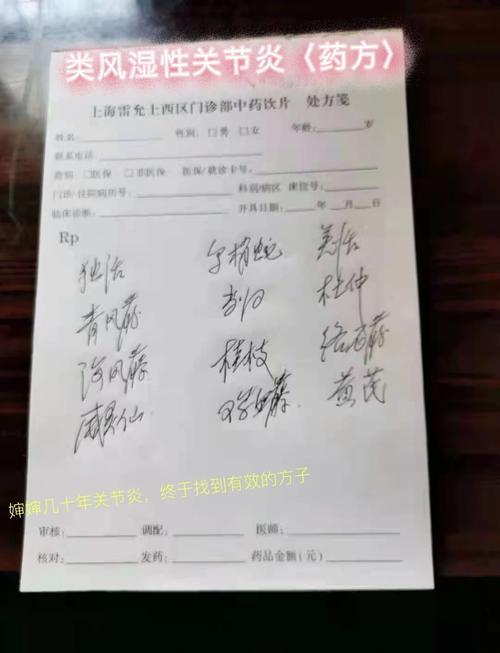 类风湿性关节炎〈药方〉
上海雷允上西区门诊部中药饮片 处方笺
姓名: 性别: □男 □女 年龄: 岁
联系电话:
费别: □医保 □非医保 医保/就诊卡号:
门诊/住院病历号: 科别/病区 床位号:
临床诊断: 开具日期: 年 月 日
Rp
独活 乌梢蛇 羌活
青风藤 当归 杜仲
海风藤 桂枝 络石藤
威灵仙 鸡血藤 黄芪
婶婶几十年关节炎，终于找到有效的方子
审核: 调配: 医师:
核对: 发药: 药品金额(元)